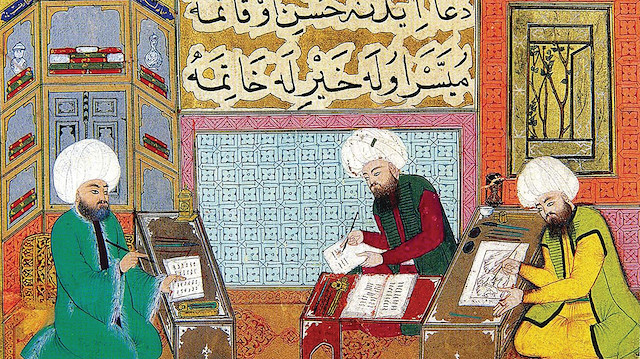 دعا ایدنه حسن و قائمه
میسر اوله خیر له خاتمه